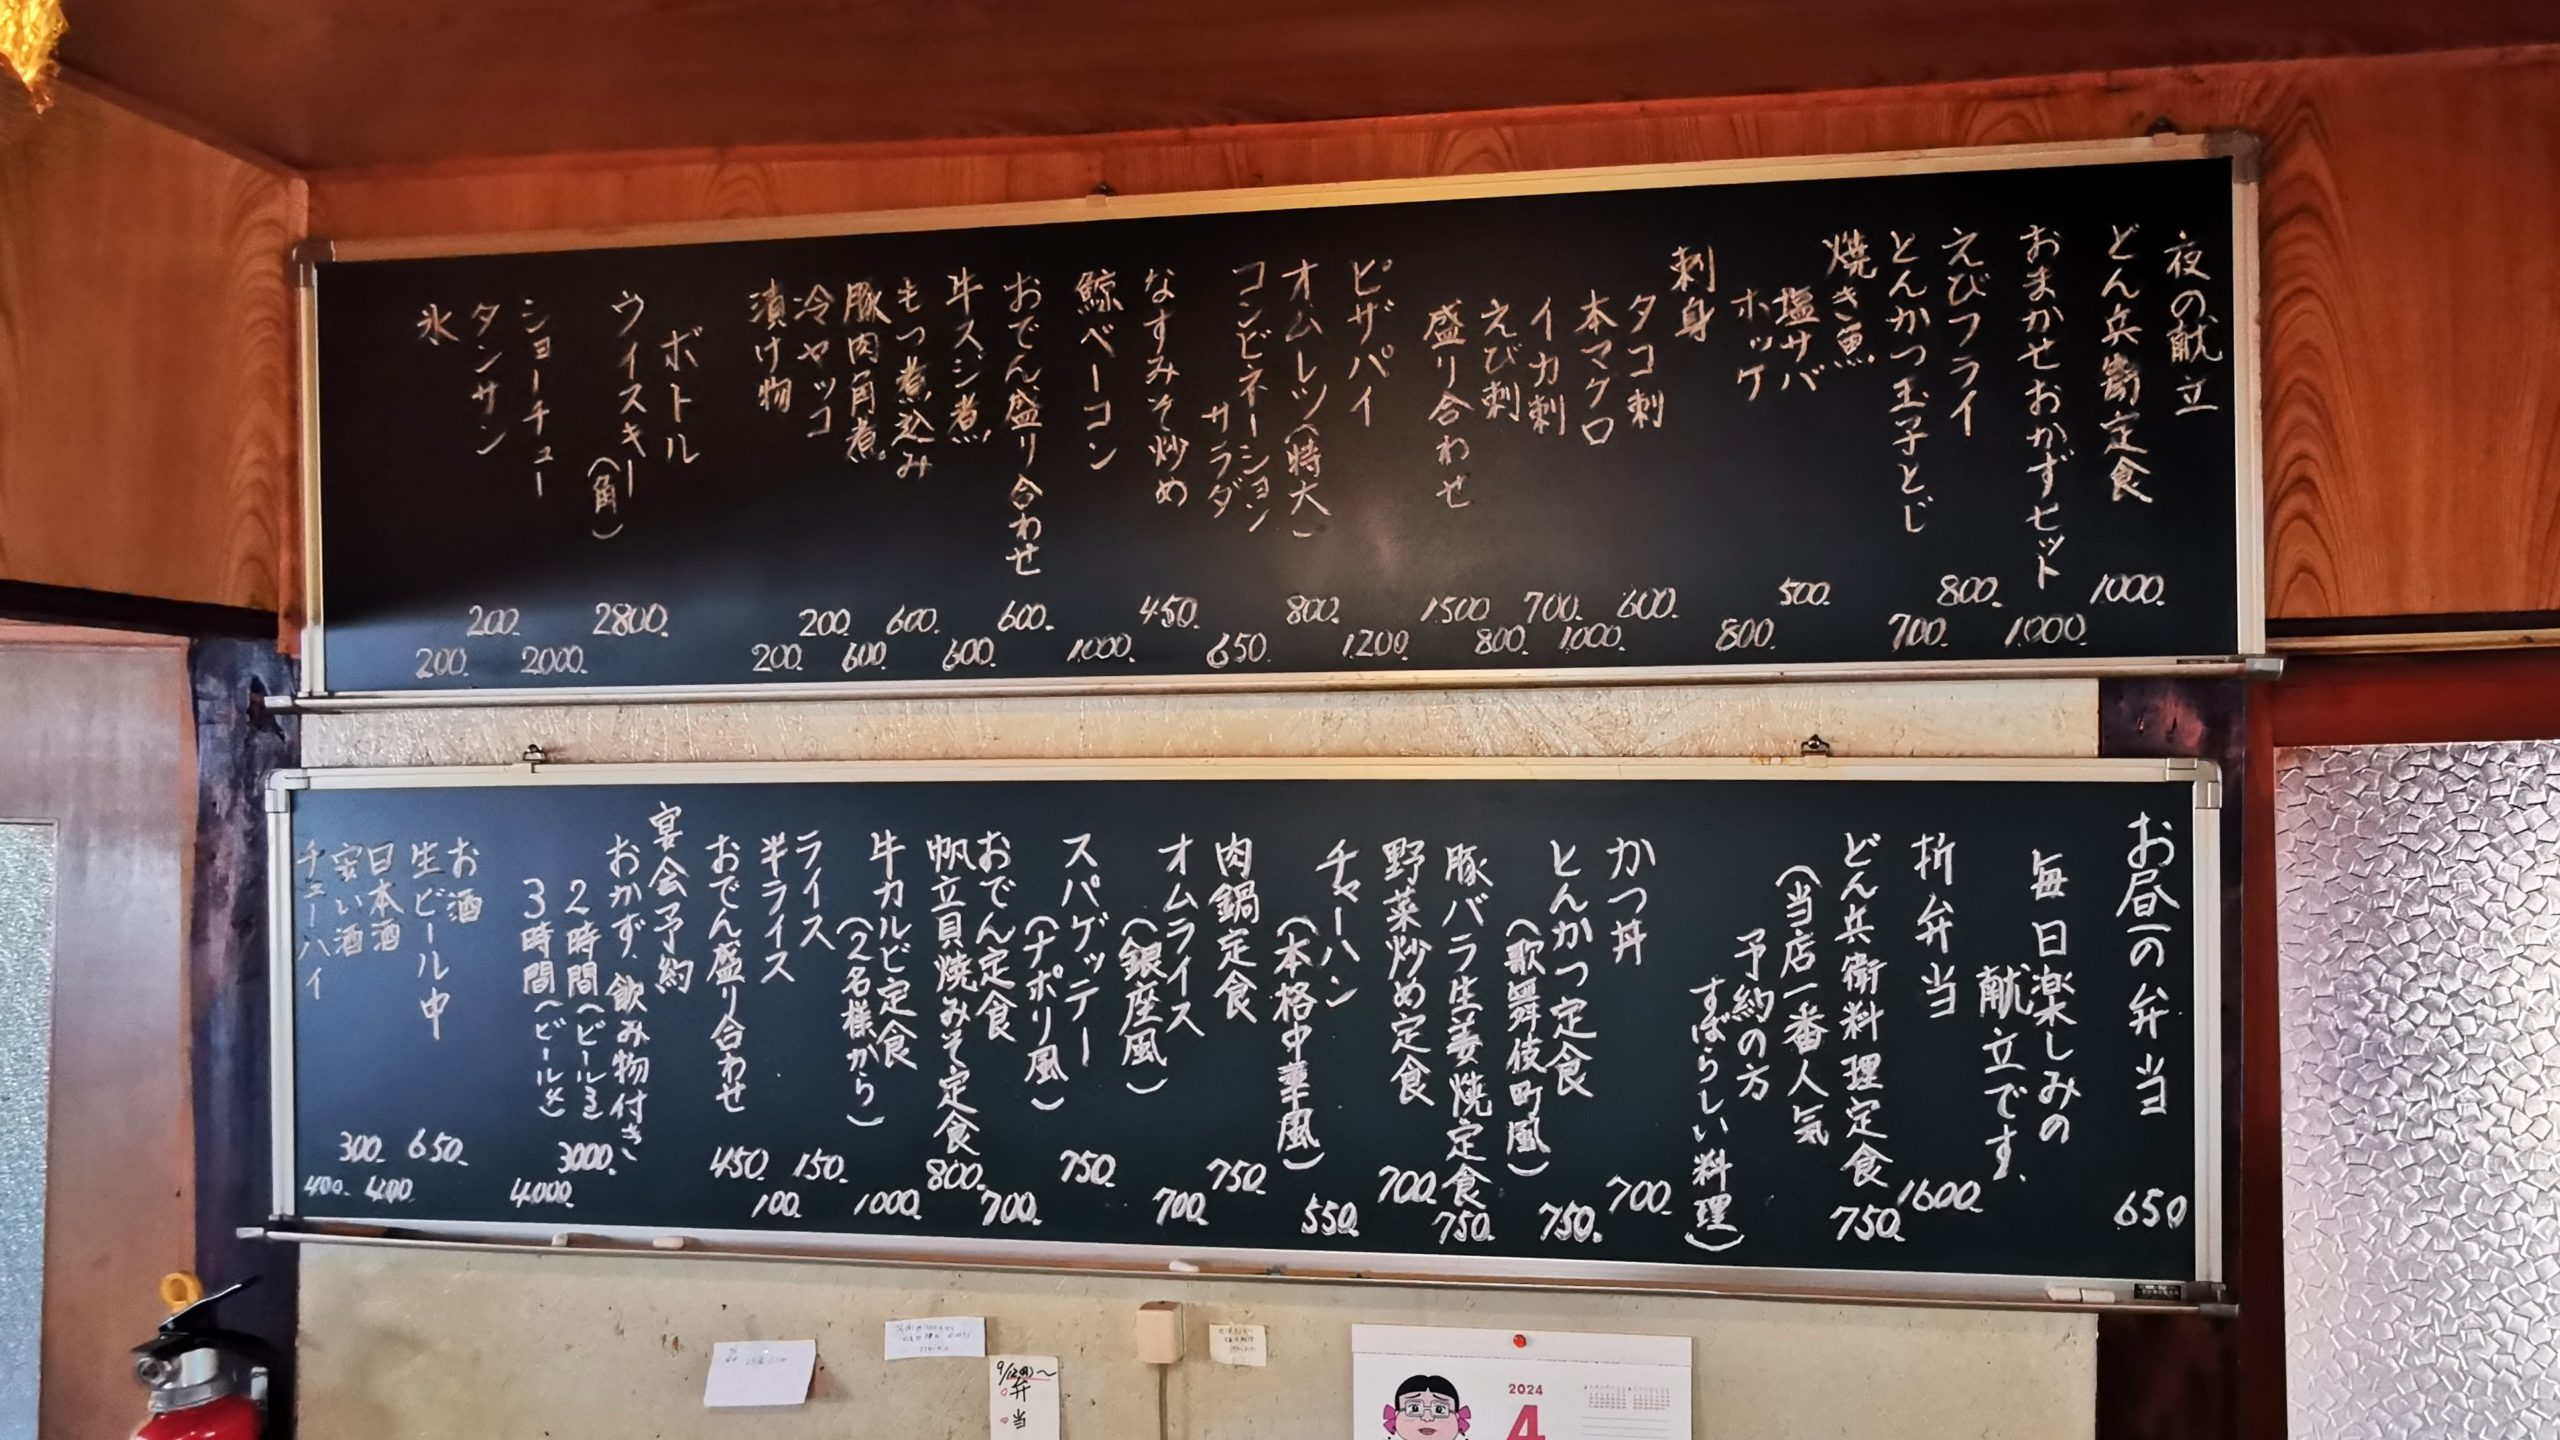 夜の献立
どん兵衛定食 1000.
おまかせおかずセット 1000.
えびフライ 800.
とんかつ玉子とじ 700.
焼き魚
塩サバ 500.
ホッケ 800.
刺身
タコ刺 600.
本マグロ 1000.
イカ刺 700.
えび刺 800.
盛り合わせ 1500.
ピザパイ 1200.
オムレツ(特大) 800.
コンビネーション
サラダ 650.
なすみそ炒め 450.
鯨ベーコン 1000.
おでん盛り合わせ 600.
牛スジ煮 600.
もつ煮込み 600.
豚肉角煮 600.
冷ヤッコ 200.
漬け物 200.
ボトル
ウイスキー(角) 2800.
ショーチュー 2000.
タンサン 200.
氷 200.
お昼の弁当 650
毎日楽しみの
献立です.
折弁当 1600.
どん兵衛料理定食 750.
(当店一番人気
予約の方
すばらしい料理)
かつ丼 700.
とんかつ定食 750.
(歌舞伎町風)
豚バラ生姜焼定食 750.
野菜炒め定食 700.
チャーハン 550.
(本格中華風)
肉鍋定食 750.
オムライス 700.
(銀座風)
スパゲッテー 750.
(ナポリ風)
おでん定食 700.
帆立貝焼みそ定食 800.
牛カルビ定食 1000.
(2名様から)
ライス 150.
半ライス 100.
おでん盛り合わせ 450.
宴会予約
おかず、飲み物付き
2時間(ビール 3000.
3時間(ビール 4000.
お酒
生ビール中 650.
日本酒 400.
安い酒 300.
チューハイ 400.
弁当
2024
4